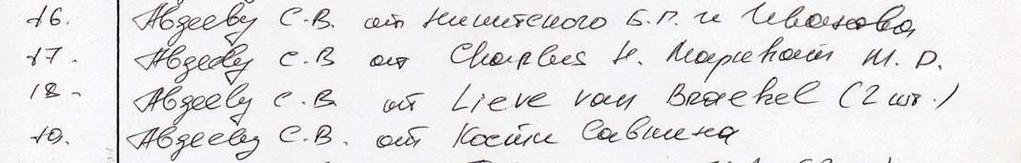 16. Авдееву С.В. от Никитского Б.П. и Иванова
17. Авдееву С.В от Charles H. М. Р.
18 - Авдееву С.В. от Lieve van Braekel (2 шт.)
19. Авдееву С.В. от Кости Савкина